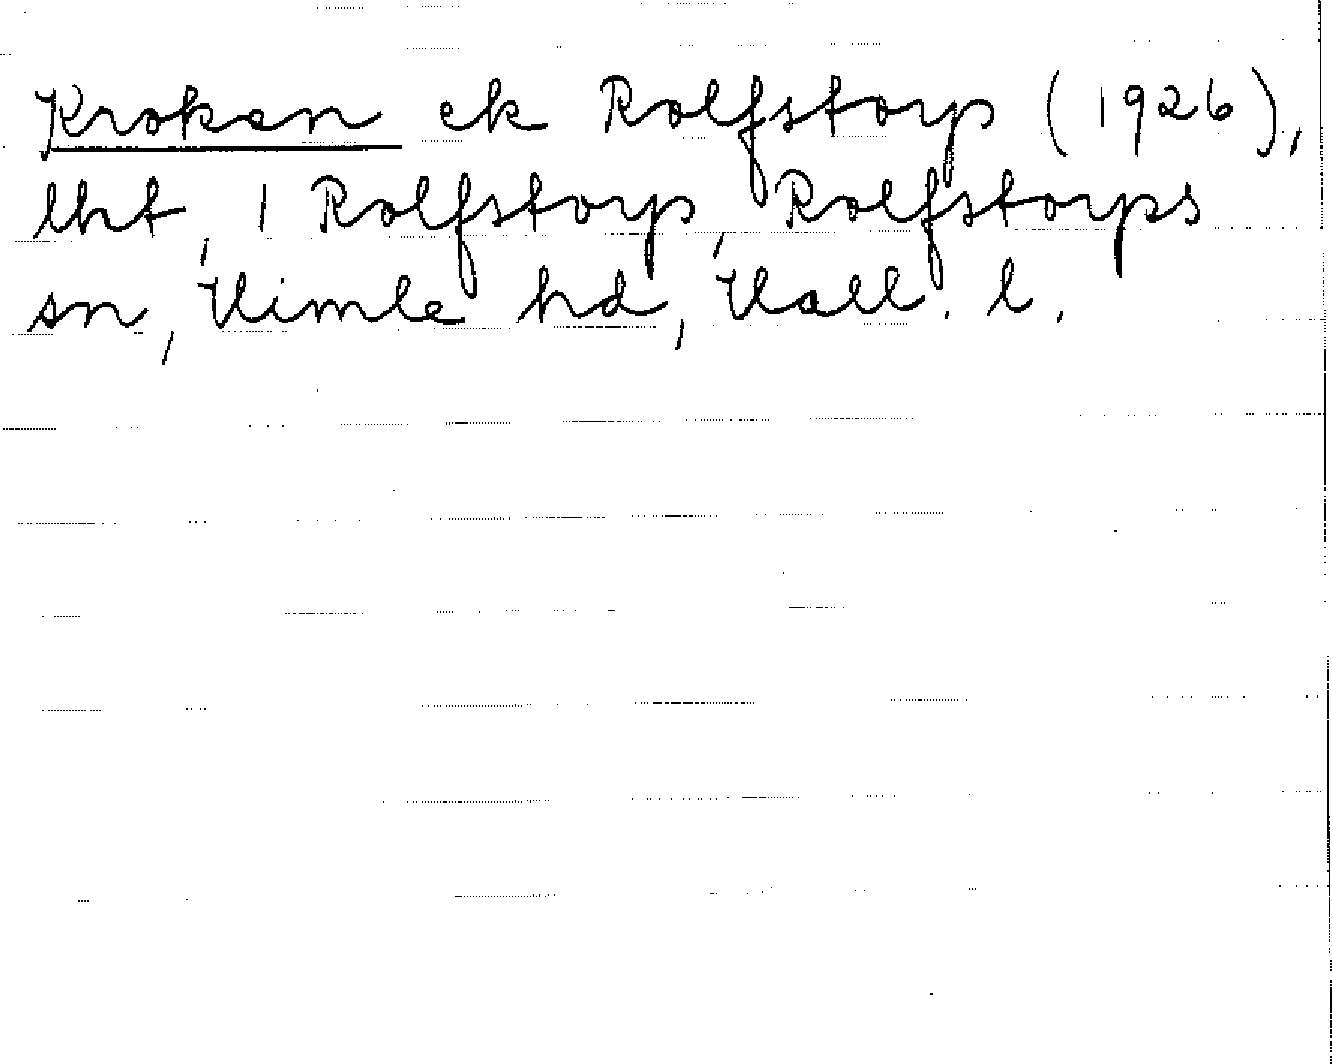 Kroken ek Rolfstorp (1926),
lht, 1 Rolfstorp, Rolfstorps
sn, Himle hd, Hall. l.